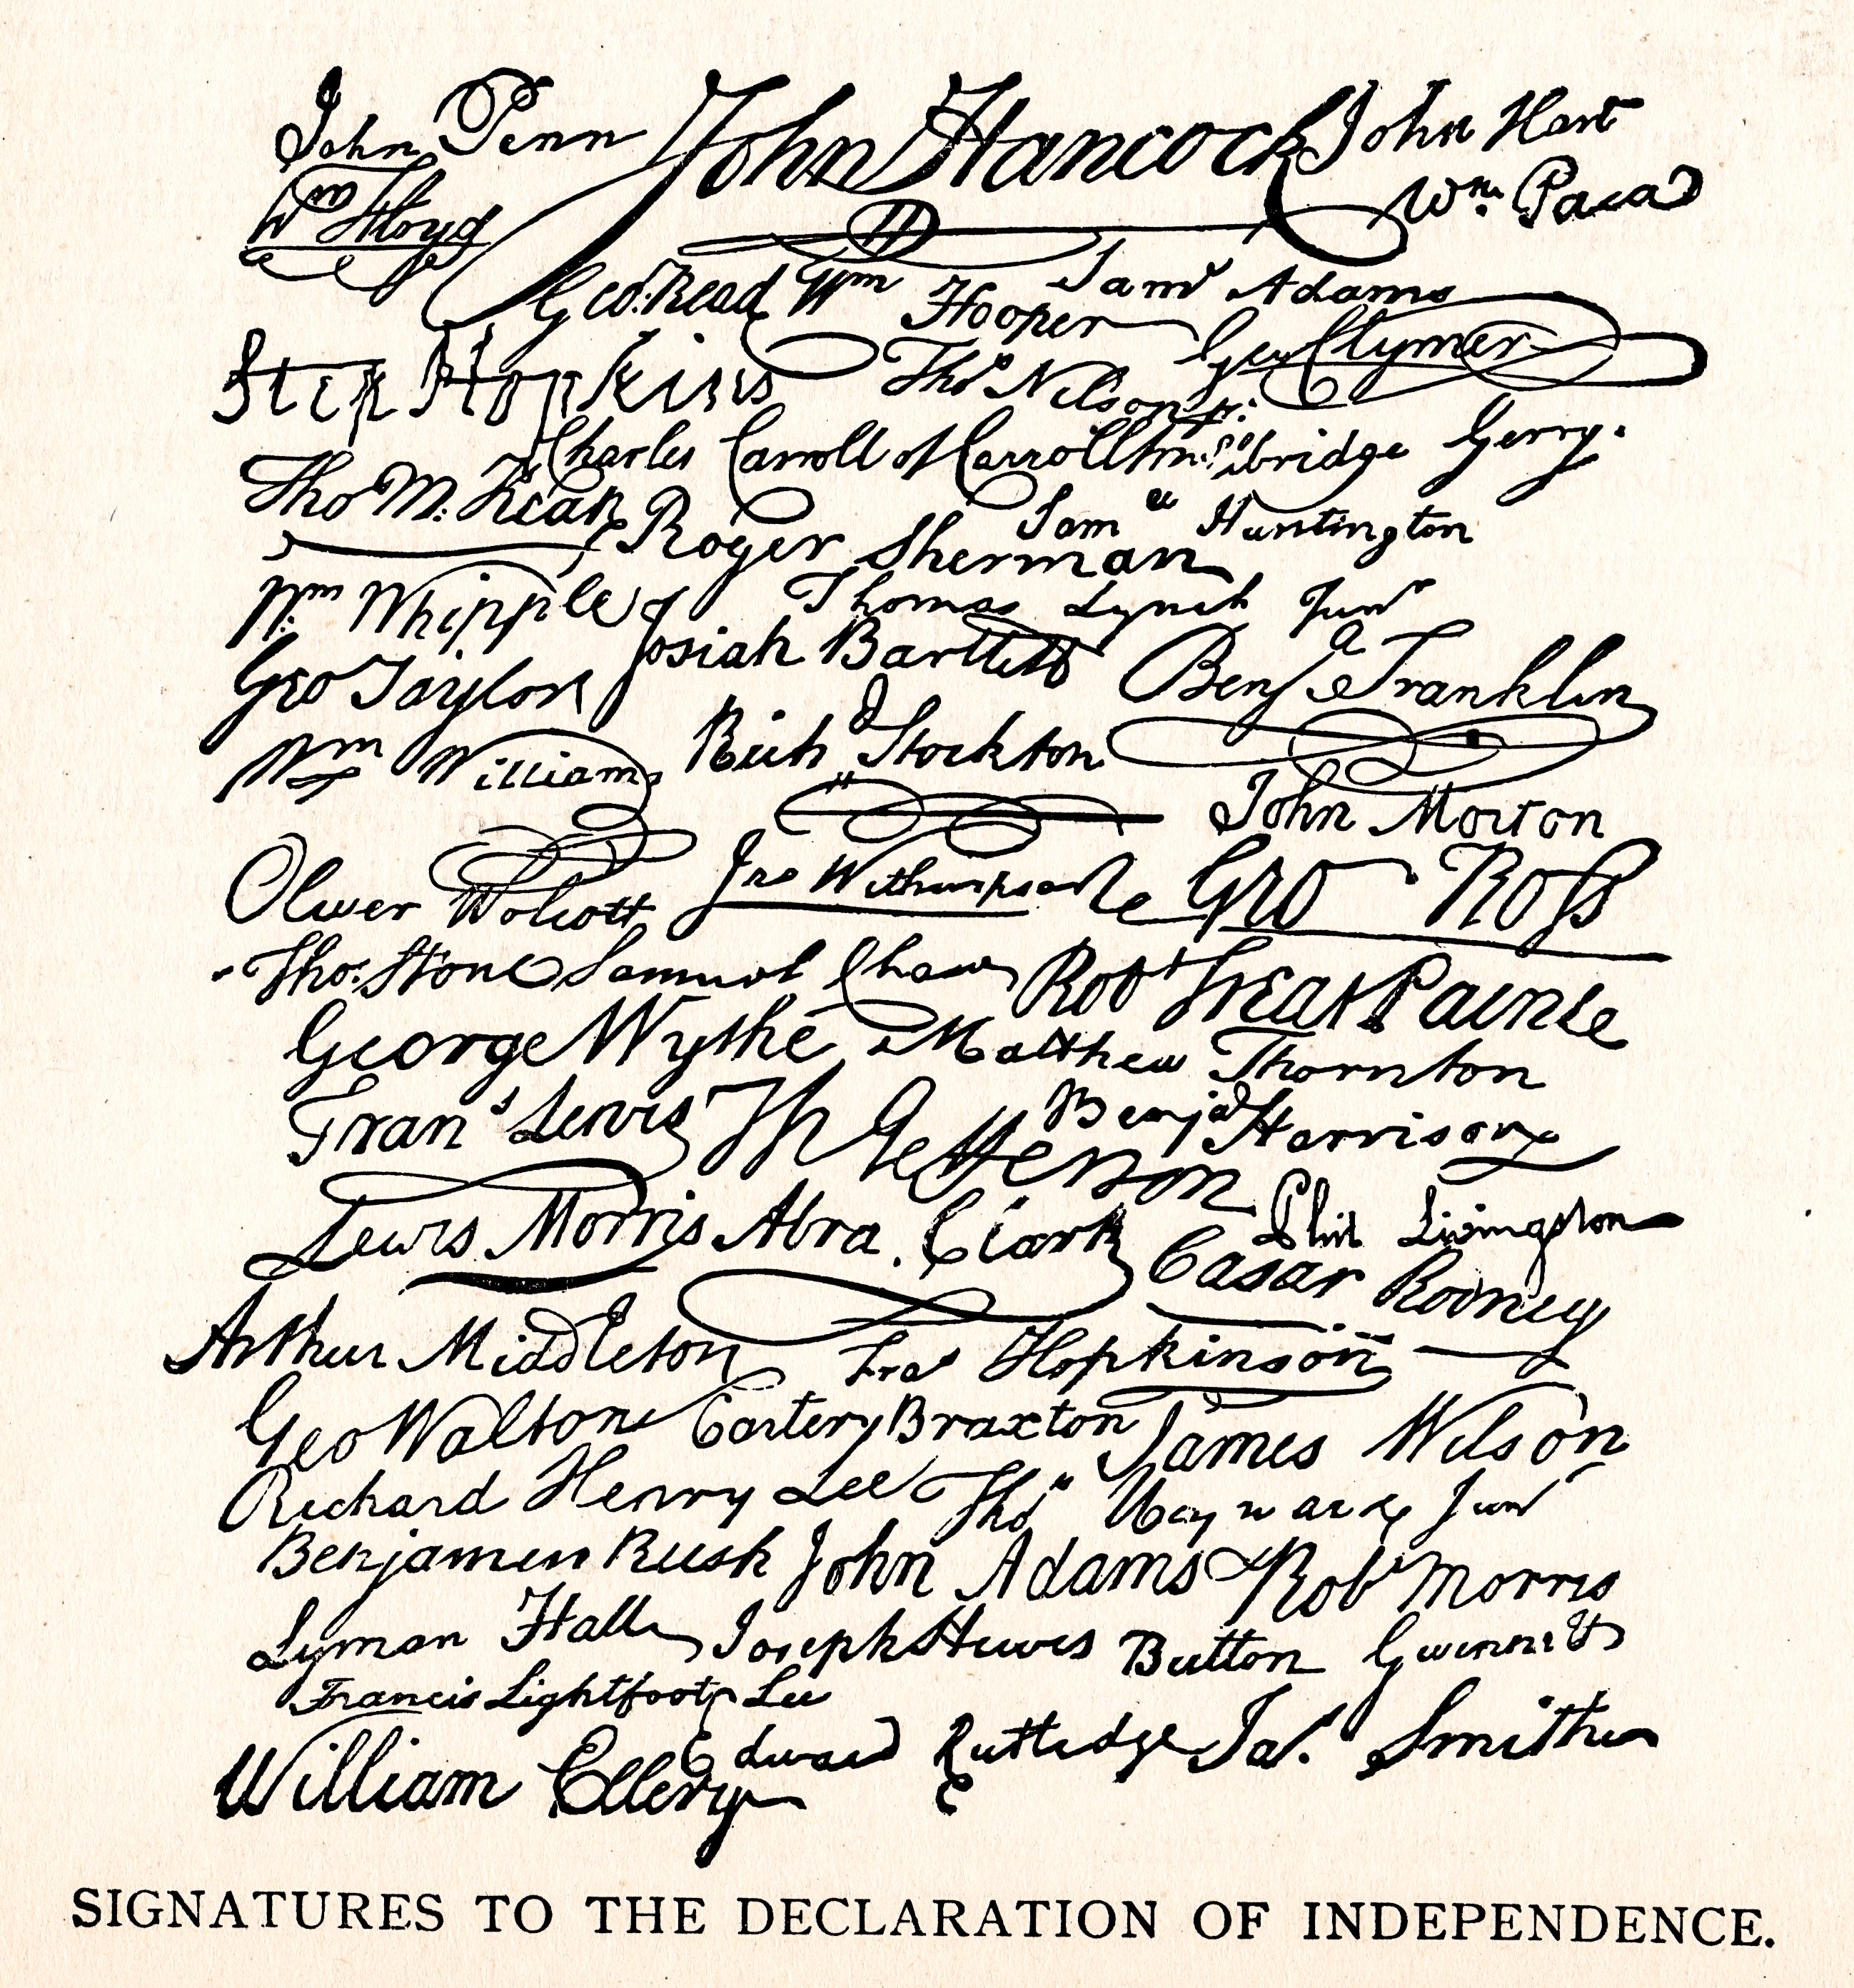 John Penn John Hancock John Hart
Wm Floyd Wm. Paca
Geo. Read Wm Hooper Saml Adams
Step Hopkins Thos Nelson jr. Geo Clymer
Charles Carroll of Carrollton Elbridge Gerry.
Tho M: Kean Roger Sherman Samel Huntington
Wm Whipple Thomas Lynch Junr
Geo Taylor Josiah Bartlett Benja Franklin
Wm Williams Richd Stockton
John Morton
Oliver Wolcott Jno Witherspoon Geo Ross
Thos. Stone Samuel Chase Robt Treat Paine
George Wythe Matthew Thornton
Frans Lewis Th Jefferson Benja Harrison
Lewis Morris Abra. Clark Phil Livingston
Cæsar Rodney
Arthur Middleton Fras Hopkinson
Geo Walton Carter Braxton James Wilson
Richard Henry Lee Thos Heyward Junr
Benjamin Rush John Adams Robt Morris
Lyman Hall Joseph Hewes Button Gwinnett
Francis Lightfoot Lee
William Ellery Edward Rutledge Jas. Smith
SIGNATURES TO THE DECLARATION OF INDEPENDENCE.